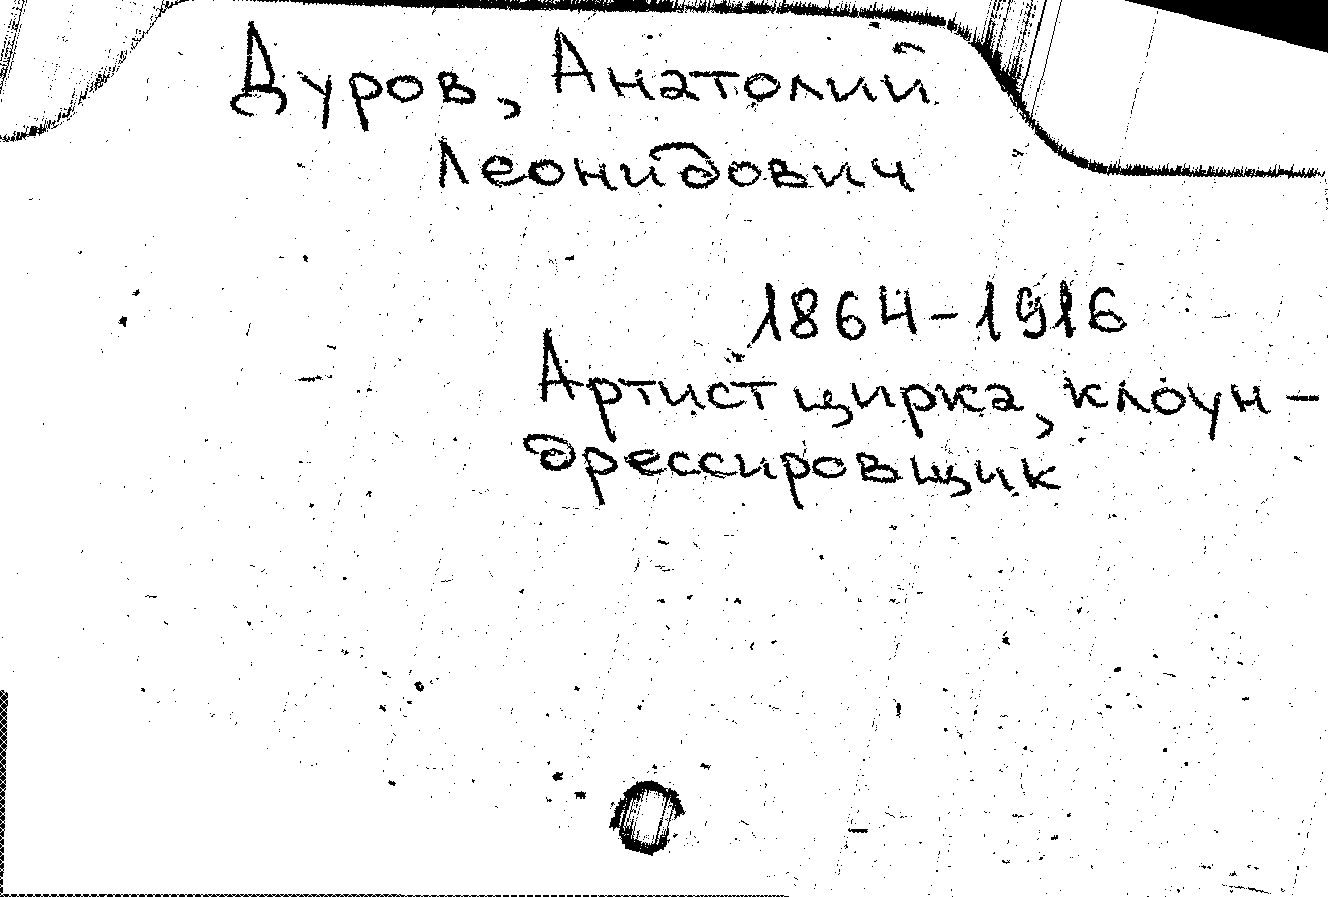 Дуров, Анатолий
Леонидович
1864-1916
Артист цирка, клоун-
дрессировщик